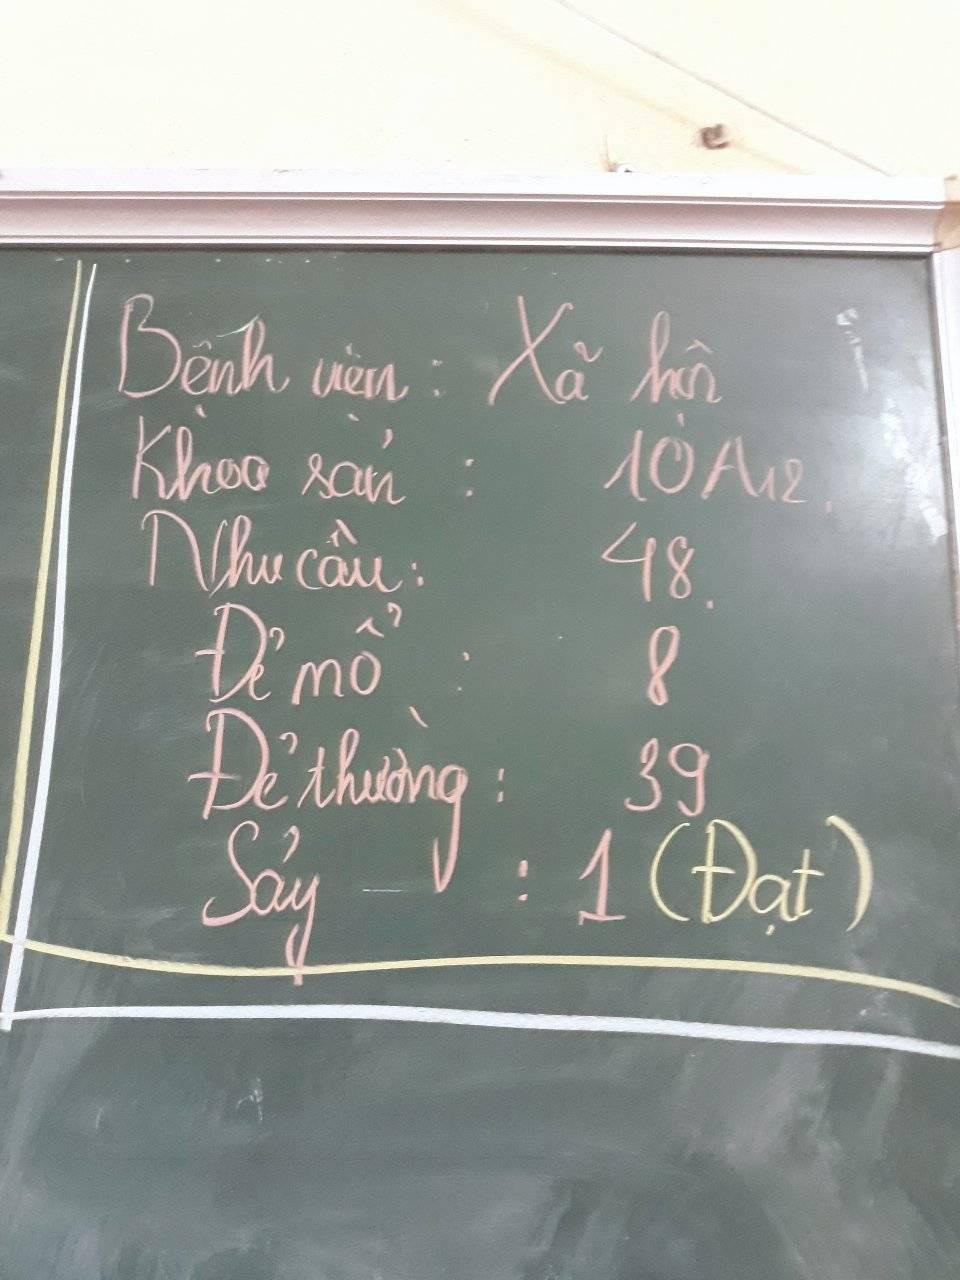 Bệnh viện : Xã hội
Khoa sản : 10A12.
Nhu cầu : 48.
Đẻ mổ : 8
Đẻ thường : 39
Sảy : 1 (Đạt)